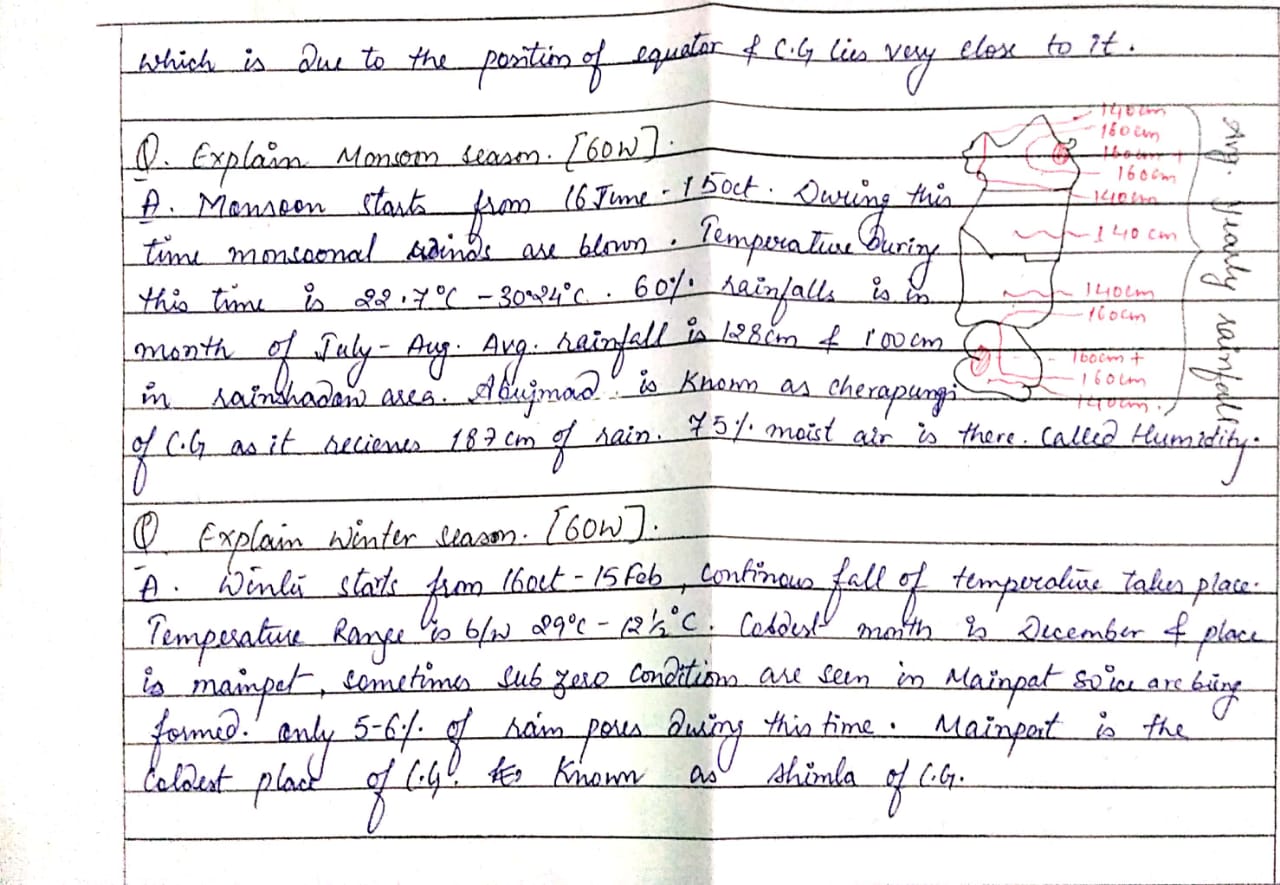 which is Due to the position of equator & C.G lies very close to it.
Q. Explain Monsoon season. [60W].
A. Monsoon starts from 16 June - 15 oct. During this
time monsoonal winds are blown. Temperature During
this time is 22.7°C - 30.24°C. 60% rainfalls is in
month of July - Aug. Avg. rainfall is 128cm & 100cm
in rainshadow area. Abujmad is Known as cherapungi
of C.G as it recieves 187cm of rain. 75% moist air is there. Called Humidity.
140cm
160cm
160cm +
160cm
140cm
140 cm
140cm
160cm
160cm +
160cm
140cm.
Avg. Yearly rainfall
Q Explain winter season. [60W].
A. Winter starts from 16oct - 15 Feb, continous fall of temperature takes place.
Temperature Range is b/w 29°C - 12½°C. Coldest month is December & place
is mainpat, sometimes sub zero conditions are seen in Mainpat so ice are being
formed. only 5-6% of rain pores During this time. Mainpart is the
Coldest place of C.G. Known as Shimla of C.G.